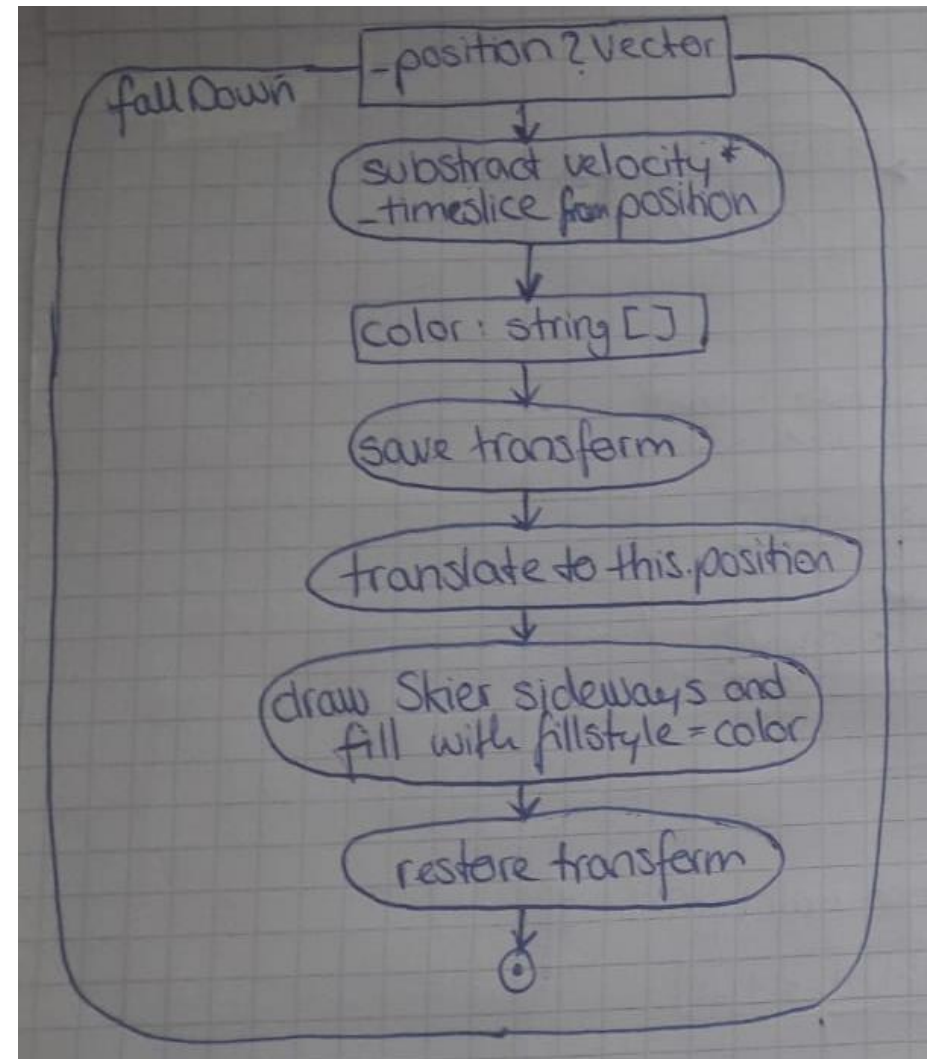 _position?Vector
fallDown
substract velocity*
_timeslice from position
color: string []
save transform
translate to this.position
draw Skier sideways and
fill with fillstyle = color
restore transform